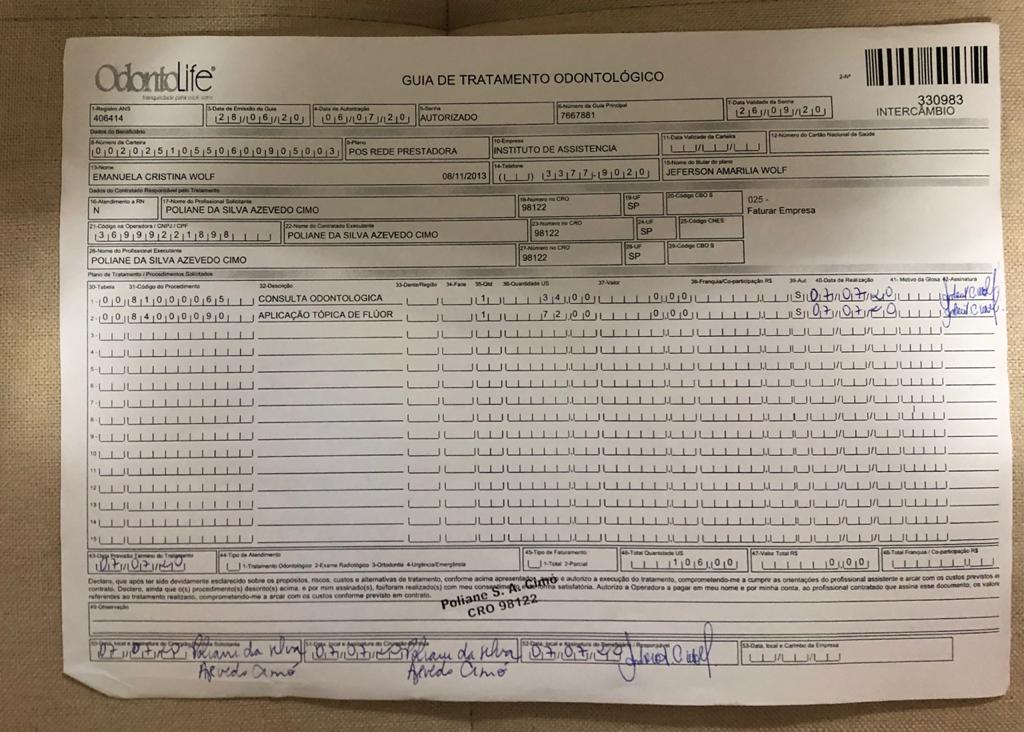 OdontoLife®
tranquilidade para você sorrir
GUIA DE TRATAMENTO ODONTOLÓGICO
2-Nº
330983
INTERCÂMBIO
1-Registro ANS
406414
3-Data de Emissão da Guia
28/06/20
4-Data de Autorização
06/07/20
5-Senha
AUTORIZADO
6-Número da Guia Principal
7667881
7-Data Validade da Senha
26/09/20
Dados do Beneficiário
8-Número da Carteira
00202510550600905003
9-Plano
POS REDE PRESTADORA
10-Empresa
INSTITUTO DE ASSISTENCIA
11-Data Validade da Carteira
12-Número do Cartão Nacional de Saúde
13-Nome
EMANUELA CRISTINA WOLF
08/11/2013
14-Telefone
3377-9020
15-Nome do titular do plano
JEFERSON AMARILIA WOLF
Dados do Contratado Responsável pelo Tratamento
16-Atendimento a RN
N
17-Nome do Profissional Solicitante
POLIANE DA SILVA AZEVEDO CIMO
18-Número no CRO
98122
19-UF
SP
20-Código CBO S
025 -
Faturar Empresa
21-Código na Operadora / CNPJ / CPF
36999221898
22-Nome do Contratado Executante
POLIANE DA SILVA AZEVEDO CIMO
23-Número no CRO
98122
24-UF
SP
25-Código CNES
26-Nome do Profissional Executante
POLIANE DA SILVA AZEVEDO CIMO
27-Número no CRO
98122
28-UF
SP
29-Código CBO S
Plano de Tratamento / Procedimentos Solicitados
30-Tabela 31-Código do Procedimento 32-Descrição 33-Dente/Região 34-Face 35-Qtd 36-Quantidade US 37-Valor 38-Franquia/Co-participação R$ 39-Aut 40-Data de Realização 41- Motivo da Glosa 42-Assinatura
1- 00 81000065 CONSULTA ODONTOLOGICA 1 34,00 0,00 S 07/07/20
2- 00 84000090 APLICAÇÃO TÓPICA DE FLÚOR 1 72,00 0,00 S 07/07/20
3-
4-
5-
6-
7-
8-
9-
10
11
12
13
14
15
43-Data Previsão Término do Tratamento
07/07/20
44-Tipo de Atendimento
1-Tratamento Odontológico 2-Exame Radiológico 3-Ortodontia 4-Urgência/Emergência
45-Tipo de Faturamento
1-Total 2-Parcial
46-Total Quantidade US
106,00
47-Valor Total R$
0,00
48-Total Franquia / Co-participação R$
Declaro, que após ter sido devidamente esclarecido sobre os propósitos, riscos, custos e alternativas de tratamento, conforme acima apresentados, e autorizo a execução do tratamento, comprometendo-me a cumprir as orientações do profissional assistente e arcar com os custos previstos em
contrato. Declaro, ainda que o(s) procedimento(s) descrito(s) acima, e por mim assinado(s), foi/foram realizado(s) com meu consentimento satisfatória. Autorizo a Operadora a pagar em meu nome e por minha conta, ao profissional contratado que assina esse documento, os valores
referentes ao tratamento realizado, comprometendo-me a arcar com os custos conforme previsto em contrato.
Poliane S. A. Cimó
CRO 98122
49-Observação
07/07/20 Poliane da Silva 07/07/20 Poliane da Silva 07/07/20
Azevedo Cimó Azevedo Cimó
53-Data, local e Carimbo da Empresa